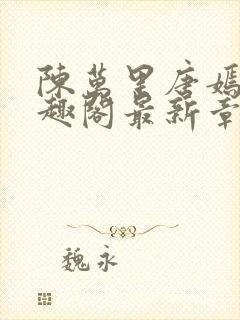 陳萬里唐嫣
趣閣最新章
魏永